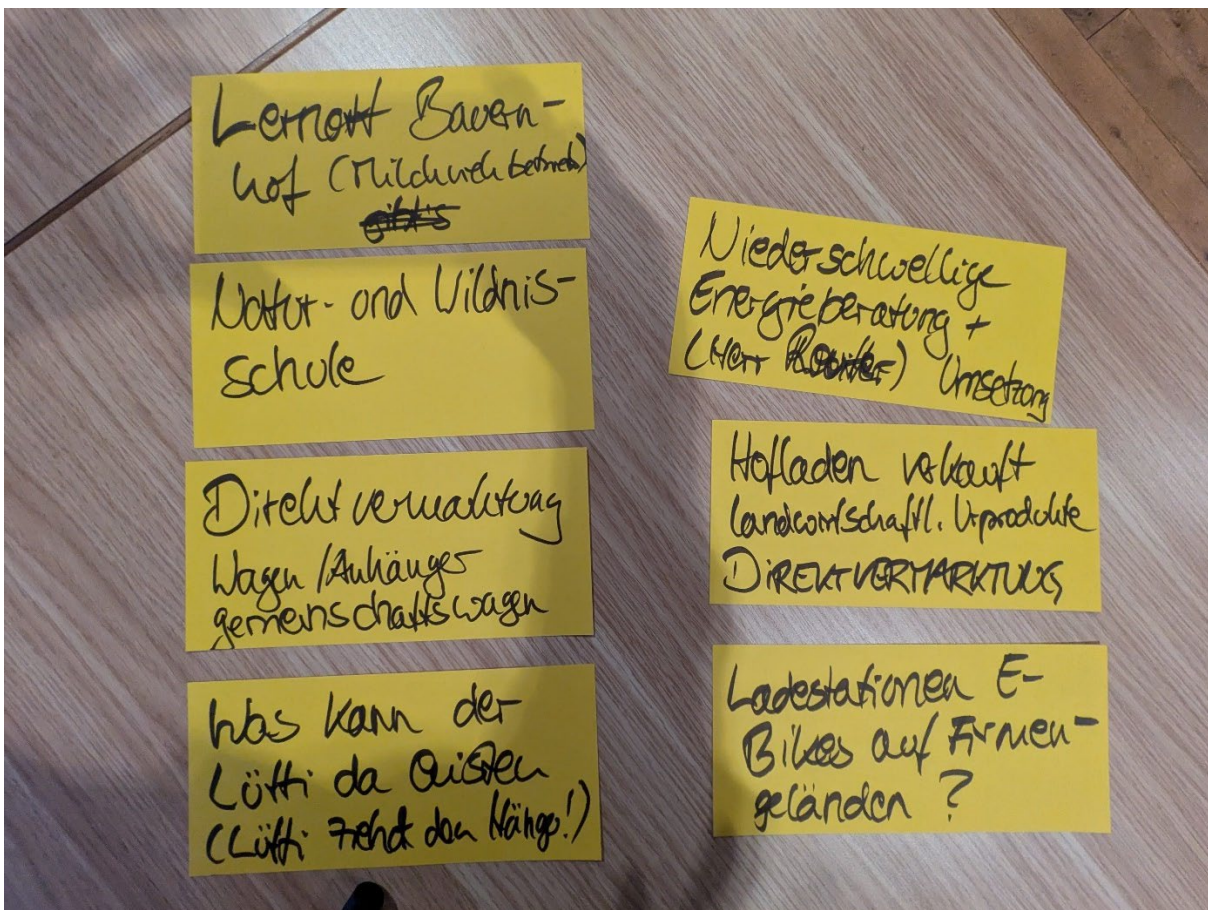 Lernort Bauern-
hof (Milchviehbetrieb)
Natur- und Wildnis-
schule
Direktvermarktung
Wagen/Anhänger
gemeinschaftswagen
Was kann der
Lütti da leisten
(Lütti zieht den Hänger!)
Niederschwellige
Energieberatung +
(Herr) Umsetzung
Hofladen verkauft
landwirtschaftl. Urprodukte
DIREKTVERMARKTUNG
Ladestationen E-
Bikes auf Firmen-
geländen ?